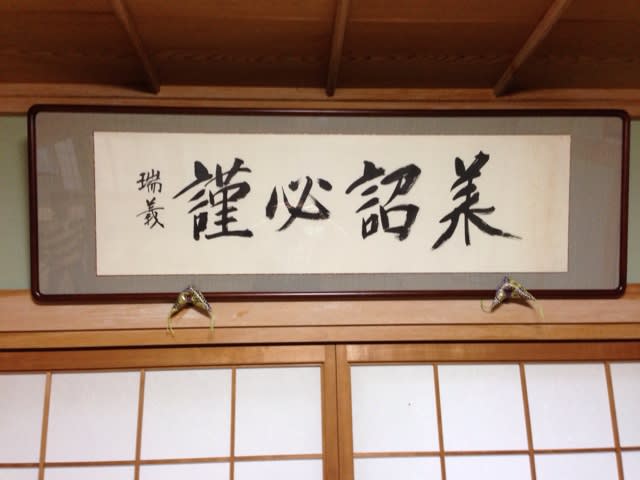 承詔必謹
瑞義